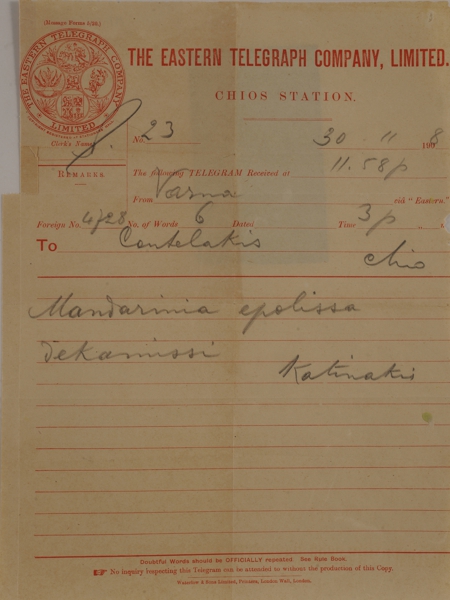 (Message Forms 4/5b.)
THE EASTERN TELEGRAPH COMPANY, LIMITED.
THE EASTERN TELEGRAPH COMPANY LIMITED
CHIOS STATION.
Clerk's Name
No. 23 30 - 11 1908
REMARKS. The following TELEGRAM Received at 11.58 p
From Varna via "Eastern."
Foreign No. No. of Words 6 Dated Time 3 p m
To Contelakis
Chio
Mandarinia epolissa
Dekamissi
Katinakis
Doubtful Words should be OFFICIALLY repeated. See Rule Book.
No inquiry Inspecting this Telegram can be attended to without the production of this Copy.
Waterlow & Sons Limited, Printers, London Wall, London.